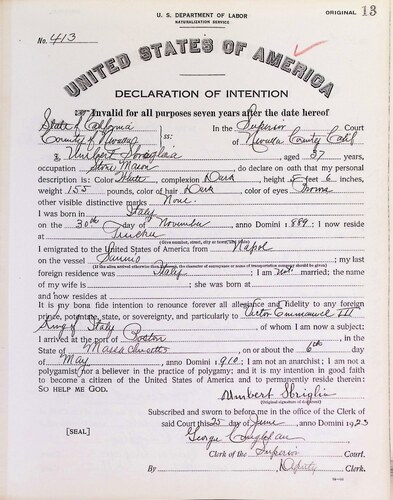 U. S. DEPARTMENT OF LABOR
NATURALIZATION SERVICE
ORIGINAL 13
No. 413
UNITED STATES OF AMERICA
DECLARATION OF INTENTION
Invalid for all purposes seven years after the date hereof
State of California
County of Nevada
ss:
In the Superior Court
of Nevada County Calif
I, Umbert Sbriglia, aged 37 years,
occupation Stone Mason, do declare on oath that my personal
description is: Color White, complexion Dark, height 5 feet 6 inches,
weight 155 pounds, color of hair Dark, color of eyes Brown
other visible distinctive marks None.
I was born in Italy
on the 30th day of November, anno Domini 1889; I now reside
at Truckee
(Give number, street, city or town, and State.)
I emigrated to the United States of America from Napol
on the vessel Sannio; my last
foreign residence was Italy; I am not married; the name
of my wife is; she was born at
and now resides at
It is my bona fide intention to renounce forever all allegiance and fidelity to any foreign
prince, potentate, state, or sovereignty, and particularly to Victor Emmanuel III
King of Italy, of whom I am now a subject;
I arrived at the port of Boston, in the
State of Massachusetts, on or about the 6th day
of May, anno Domini 1910; I am not an anarchist; I am not a
polygamist nor a believer in the practice of polygamy; and it is my intention in good faith
to become a citizen of the United States of America and to permanently reside therein:
SO HELP ME GOD.
Umbert Sbriglia
(Original signature of declarant.)
Subscribed and sworn to before me in the office of the Clerk of
said Court this 25 day of June, anno Domini 1923
[SEAL]
George
Clerk of the Superior Court.
By, Deputy Clerk.